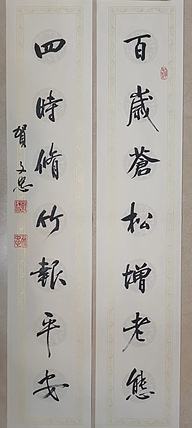 百歲蒼松增老態
四時脩竹報平安
賀文忠